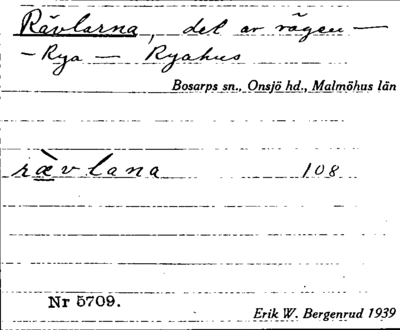 Rävlarna, del av vägen —
— Rya — Ryahus
Bosarps sn., Onsjö hd., Malmöhus län
rævlana 108
Nr 5709.
Erik W. Bergenrud 1939